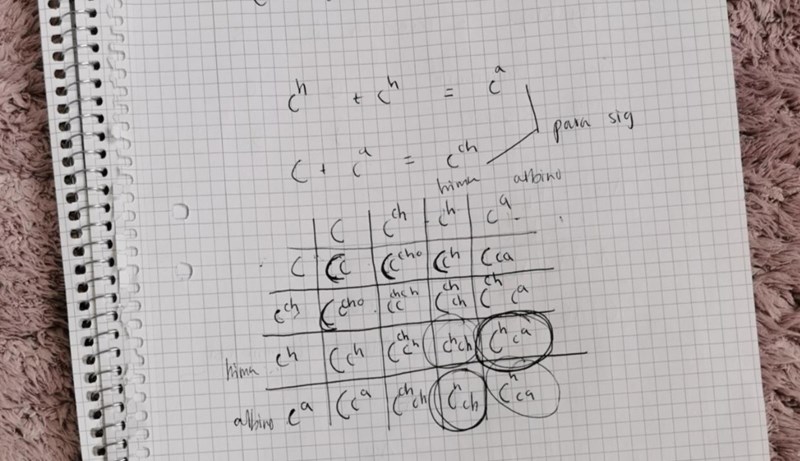 C^h + C^h = C^a
C + C^a = C^ch
para sig
hima albino
C C^ch C^h C^a
C CC CC^cho CC^h Cca
C^ch CC^cho C^ch C^ch C^h C^h C^ch C^a
hima C^h CC^h C^ch C^h C^h C^h C^h C^a
albino C^a CC^a C^ch C^h C^h C^h C^h ca